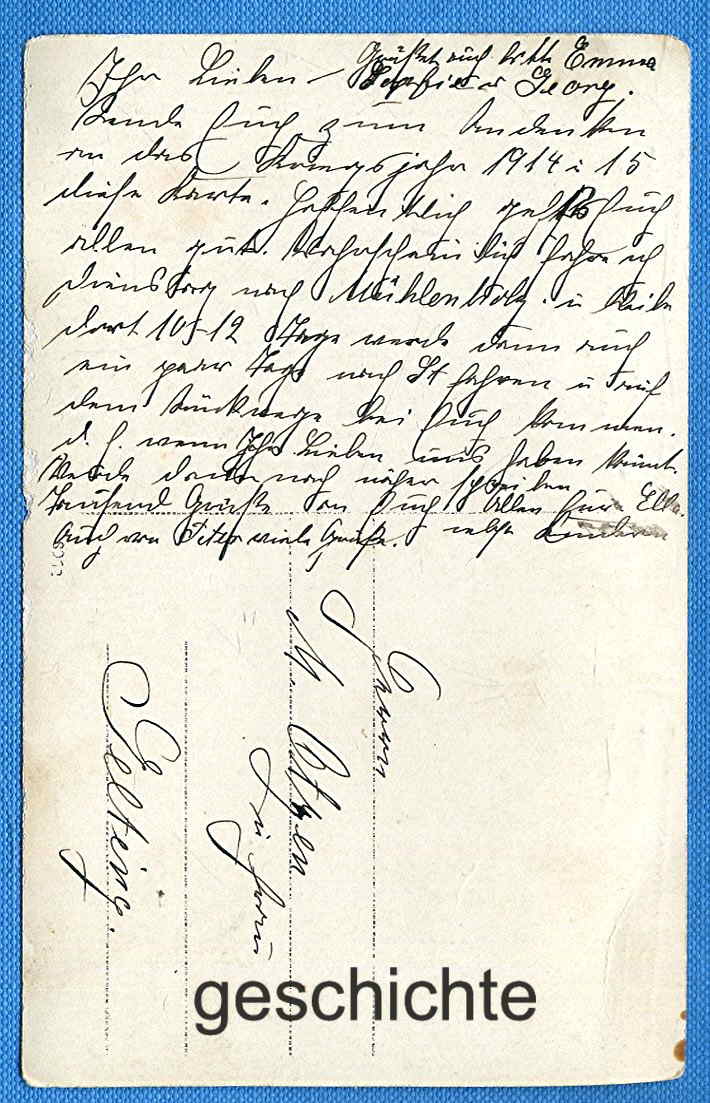 Grüßet auch bitte Emma
Ihr Lieben – Sophie u Georg.
Sende Euch zum Andenken
an das Kriegsjahr 1914 u 15
diese Karte. Hoffentlich geht's Euch
allen gut. Wahrscheinlich fahre ich
Dienstag nach Mühlenholz u bleibe
dort 10-12 Tage werde dann auch
ein paar Tage nach St fahren u auf
dem Rückwege bei Euch kommen.
d. h. wenn Ihr Lieben uns haben könnt.
Werde dann noch näher schreiben
Tausend Grüße an Euch Allen Eure Ella.
Auch von Peter viele Grüße. nebst Kindern
Herrn
M.
in
Gelting.
geschichte